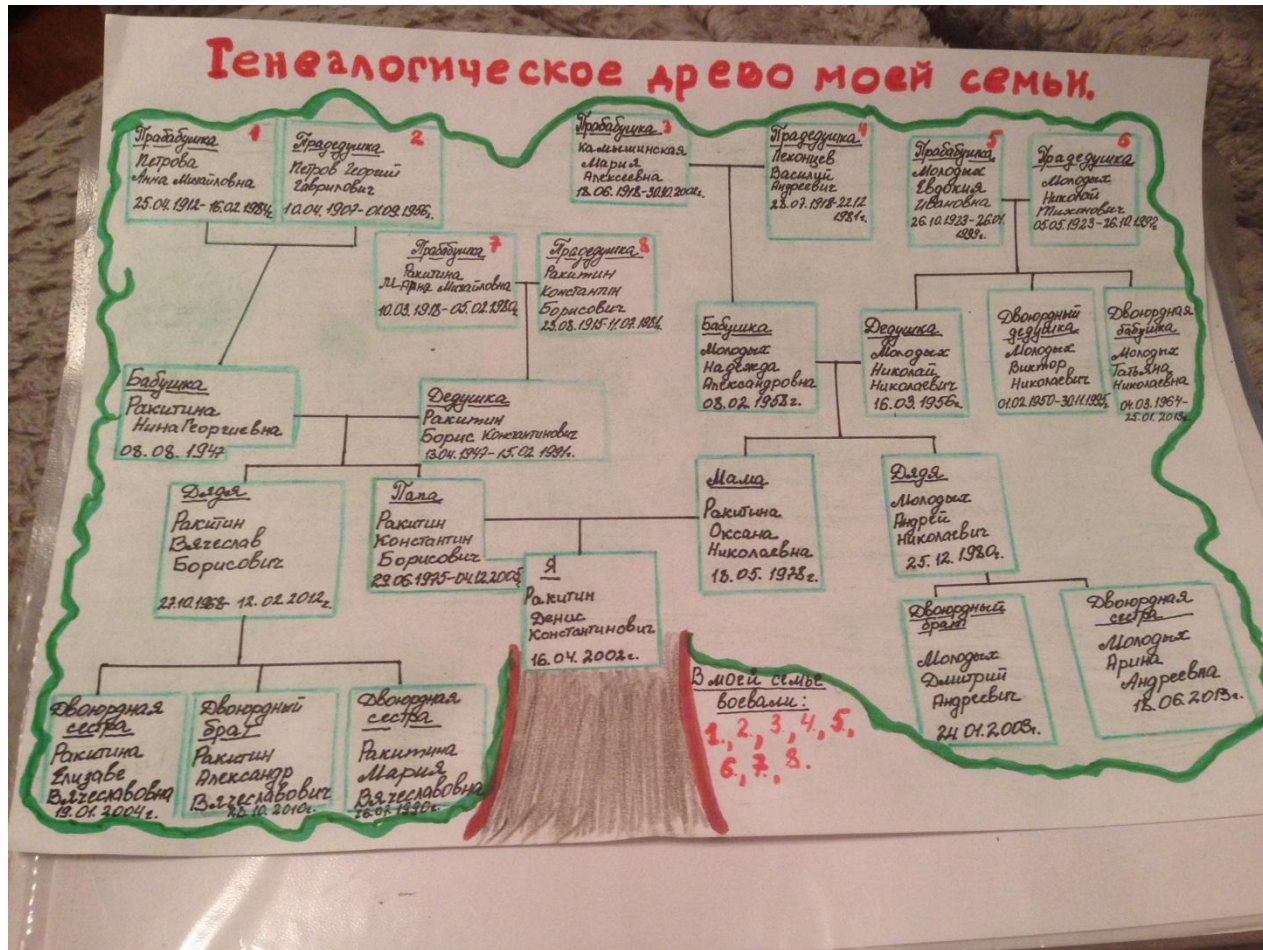 Генеалогическое древо моей семьи.
Прабабушка 1
Петрова
Анна Михайловна
25.04.1912- 16.02.1984г.
Прадедушка 2
Петров Георгий
Гаврилович
10.04.1907-01.09.1956г.
Прабабушка 3
Камышинская
Мария
Алексеевна
18.06.1918-30.10.2002г.
Прадедушка 4
Леконцев
Василий
Андреевич
23.07.1918-22.12
1981г.
Прабабушка 5
Молодых
Евдокия
Ивановна
26.10.1923-26.01.
1999г.
Прадедушка 6
Молодых
Николай
Тихонович
05.05.1923-26.10.1992г.
Прабабушка 7
Ракитина
Михайловна
10.03.1918-05.02.1980г.
Прадедушка 8
Ракитин
Константин
Борисович
Бабушка
Молодых
Надежда
Александровна
08.02.1958г.
Дедушка
Молодых
Николай
Николаевич
16.03.1956г.
Двоюрдный
дедушка
Молодых
Виктор
Николаевич
01.02.1950-30.11.1995г.
Двоюрдная
бабушка
Молодых
Татьяна
Николаевна
04.03.1964-
25.01.2013г.
Бабушка
Ракитина
Нина Георгиевна
08.08.1947
Дедушка
Ракитин
Борис Константинович
13.04.1947-15.02.1991г.
Дядя
Ракитин
Вячеслав
Борисович
27.10.1968- 12.02.2012г.
Папа
Ракитин
Константин
Борисович
29.06.1975-04.12.2005г.
Мама
Ракитина
Оксана
Николаевна
18.05.1978г.
Дядя
Молодых
Андрей
Николаевич
25.12.1980г.
Я
Ракитин
Денис
Константинович
16.04.2002г.
Двоюрдный
брат
Молодых
Дмитрий
Андреевич
24.01.2003г.
Двоюрдная
сестра
Молодых
Арина
Андреевна
18.06.2013г.
Двоюрдная
сестра
Ракитина
Елизаве
Вячеславовна
19.01.2004г.
Двоюрдный
брат
Ракитин
Александр
Вячеславович
Двоюрдная
сестра
Ракитина
Мария
Вячеславовна
В моей семье
воевали:
1., 2., 3., 4., 5.,
6., 7., 8.